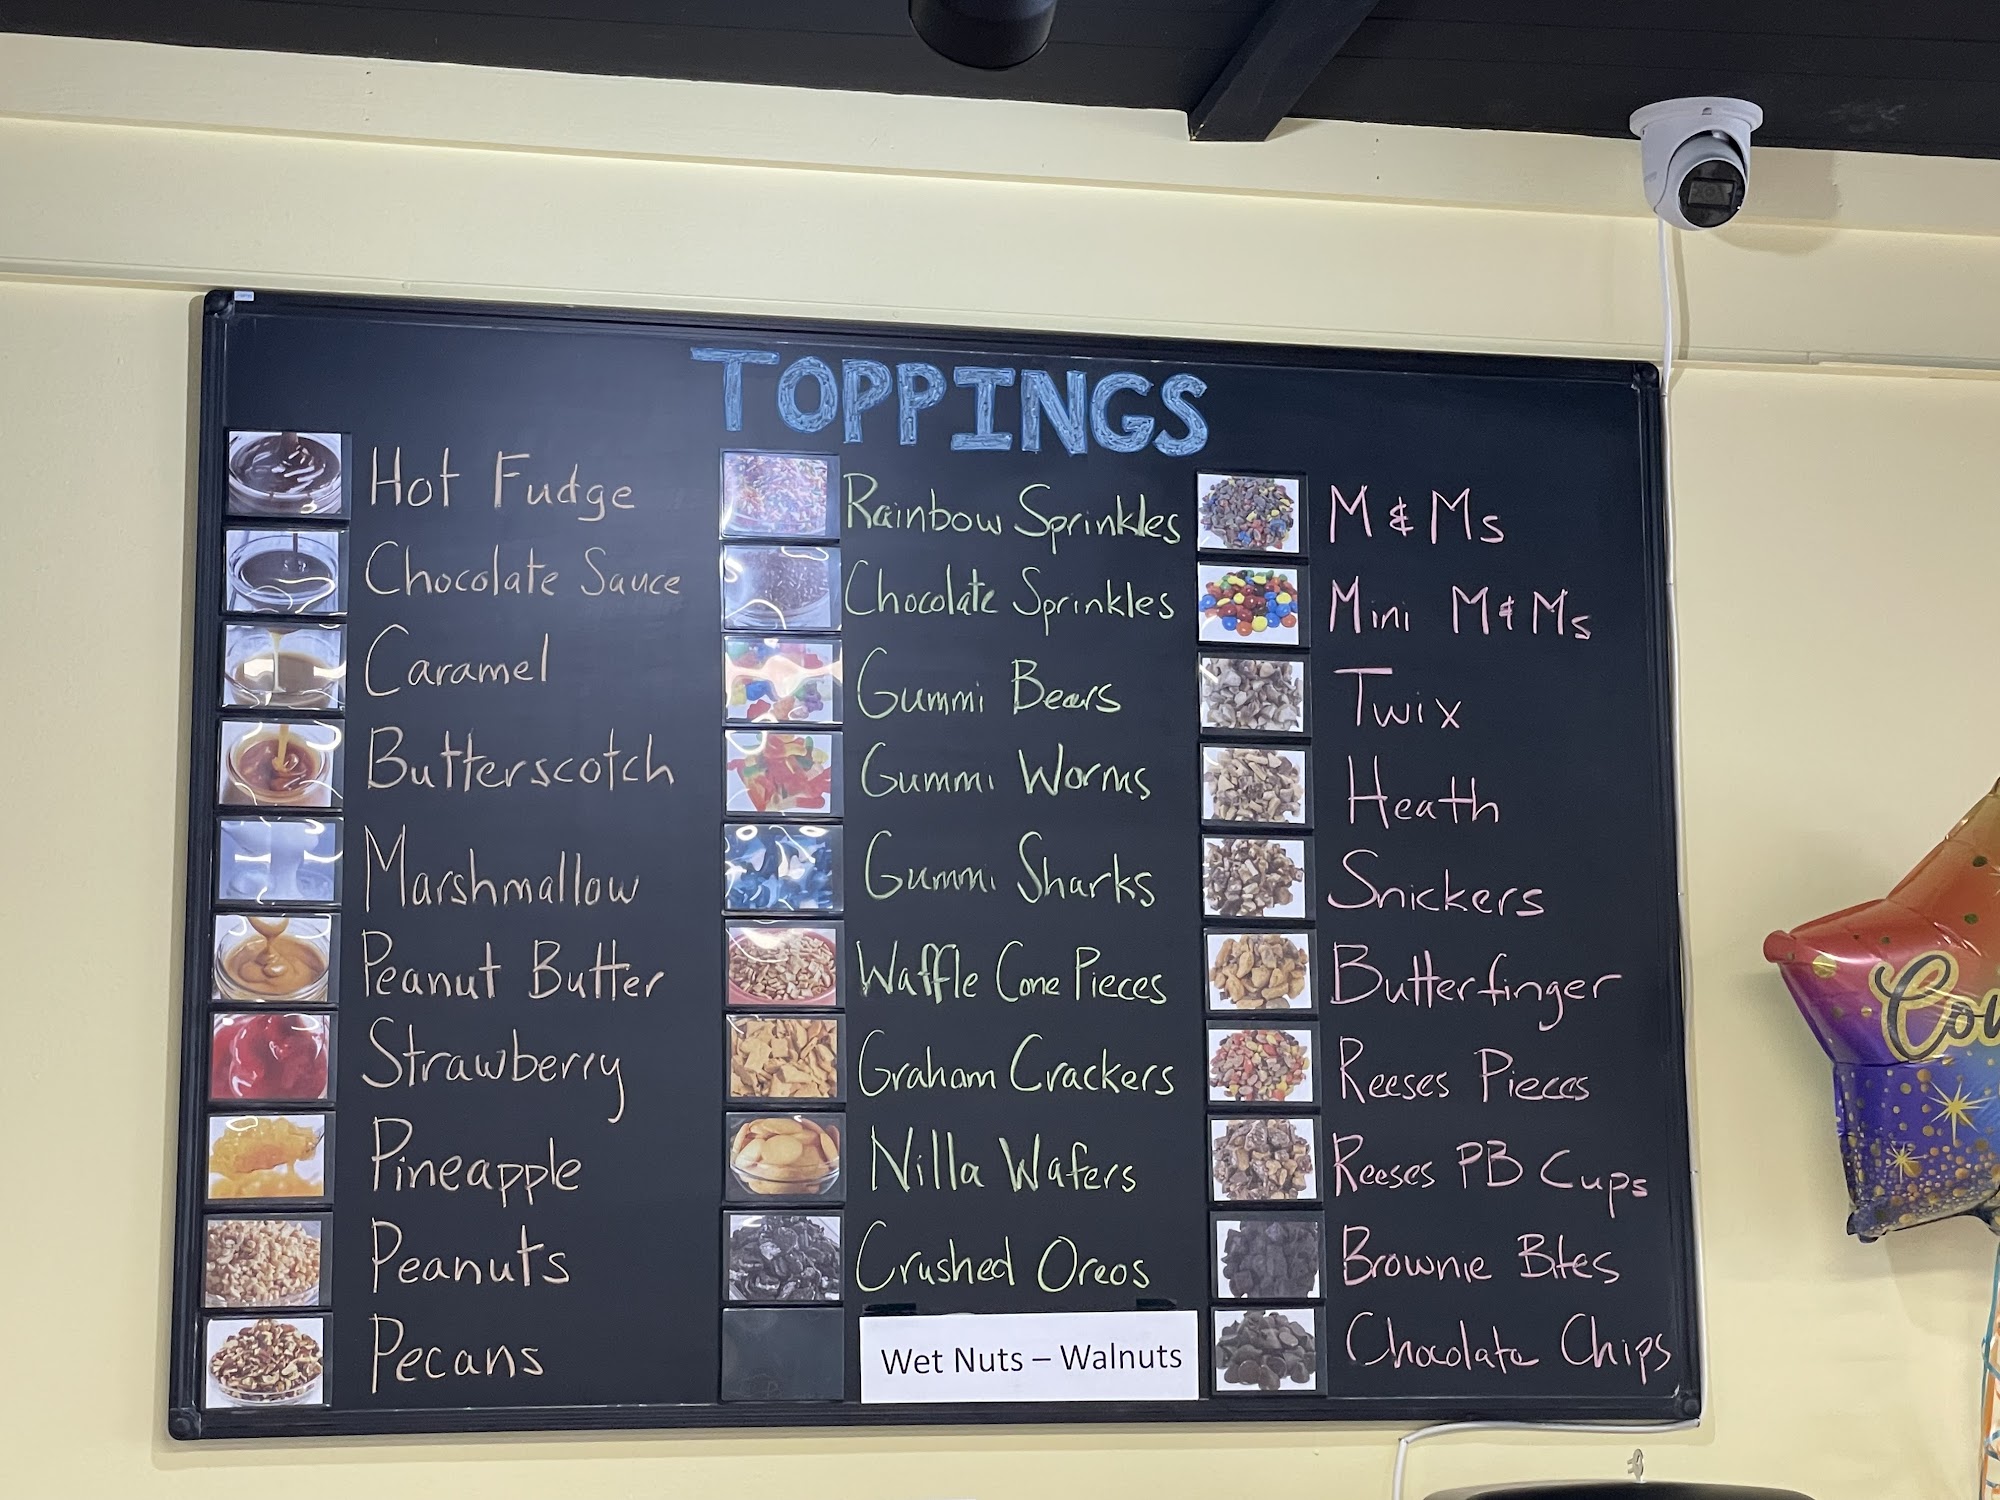 TOPPINGS
Hot Fudge
Chocolate Sauce
Caramel
Butterscotch
Marshmallow
Peanut Butter
Strawberry
Pineapple
Peanuts
Pecans
Rainbow Sprinkles
Chocolate Sprinkles
Gummi Bears
Gummi Worms
Gummi Sharks
Waffle Cone Pieces
Graham Crackers
Nilla Wafers
Crushed Oreos
Wet Nuts – Walnuts
M & Ms
Mini M & Ms
Twix
Heath
Snickers
Butterfinger
Reeses Pieces
Reeses PB Cups
Brownie Bites
Chocolate Chips